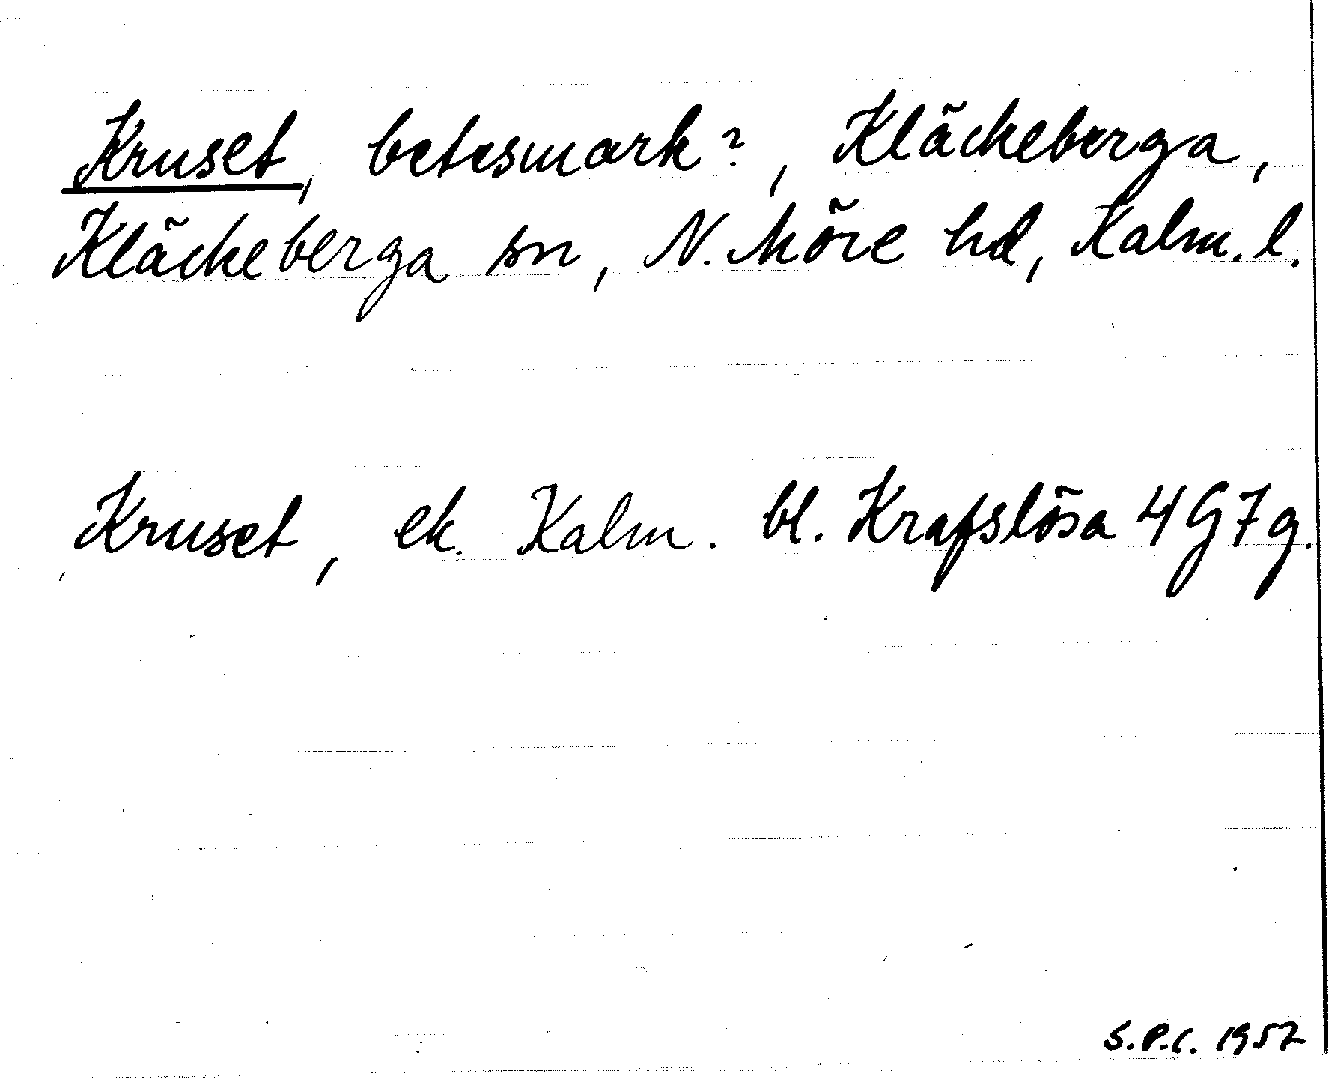 Kruset, betesmark?, Kläckeberga,
Kläckeberga sn, N. Möre hd, Kalm. l.
Kruset, ek. Kalm. bl. Krafslösa 4G7g.
S.P.C. 1957